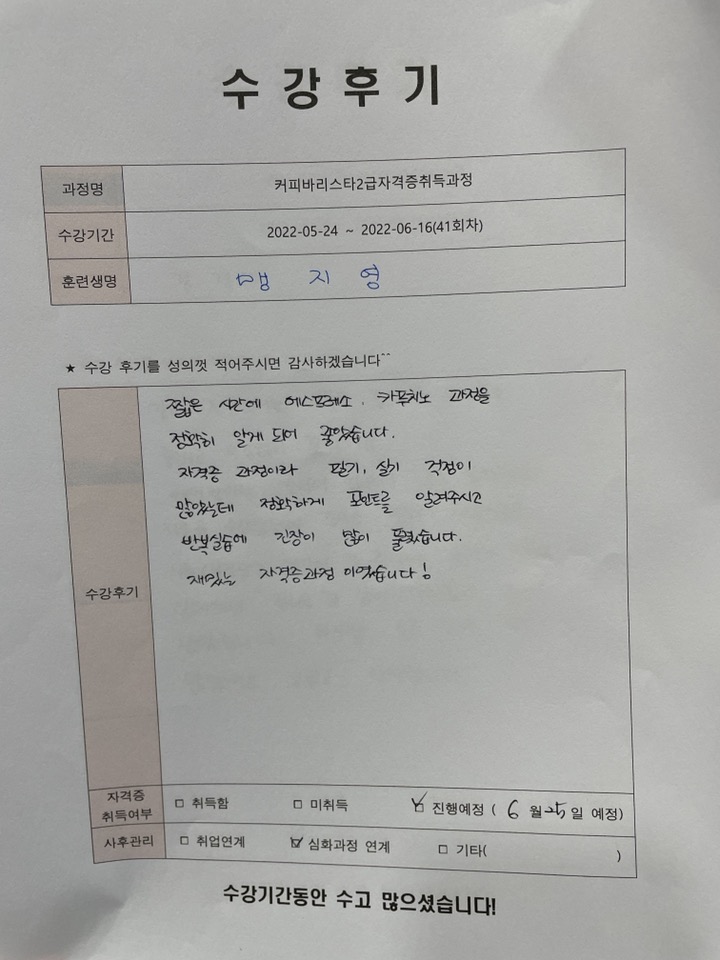 수 강 후 기
과정명 커피바리스타2급자격증취득과정
수강기간 2022-05-24 ~ 2022-06-16(41회차)
훈련생명 맹 지 영
★ 수강 후기를 성의껏 적어주시면 감사하겠습니다^^
짧은 시간에 에스프레소, 카푸치노 과정을
정확히 알게 되어 좋았습니다.
자격증 과정이라 필기, 실기 걱정이
많았는데 정확하게 포인트를 알려주시고
반복실습에 긴장이 많이 풀렸습니다.
재밌는 자격증과정 이였습니다!
수강후기
자격증
취득여부 □ 취득함 □ 미취득 ☑ 진행예정 ( 6 월 25 일 예정)
사후관리 □ 취업연계 ☑ 심화과정 연계 □ 기타( )
수강기간동안 수고 많으셨습니다!